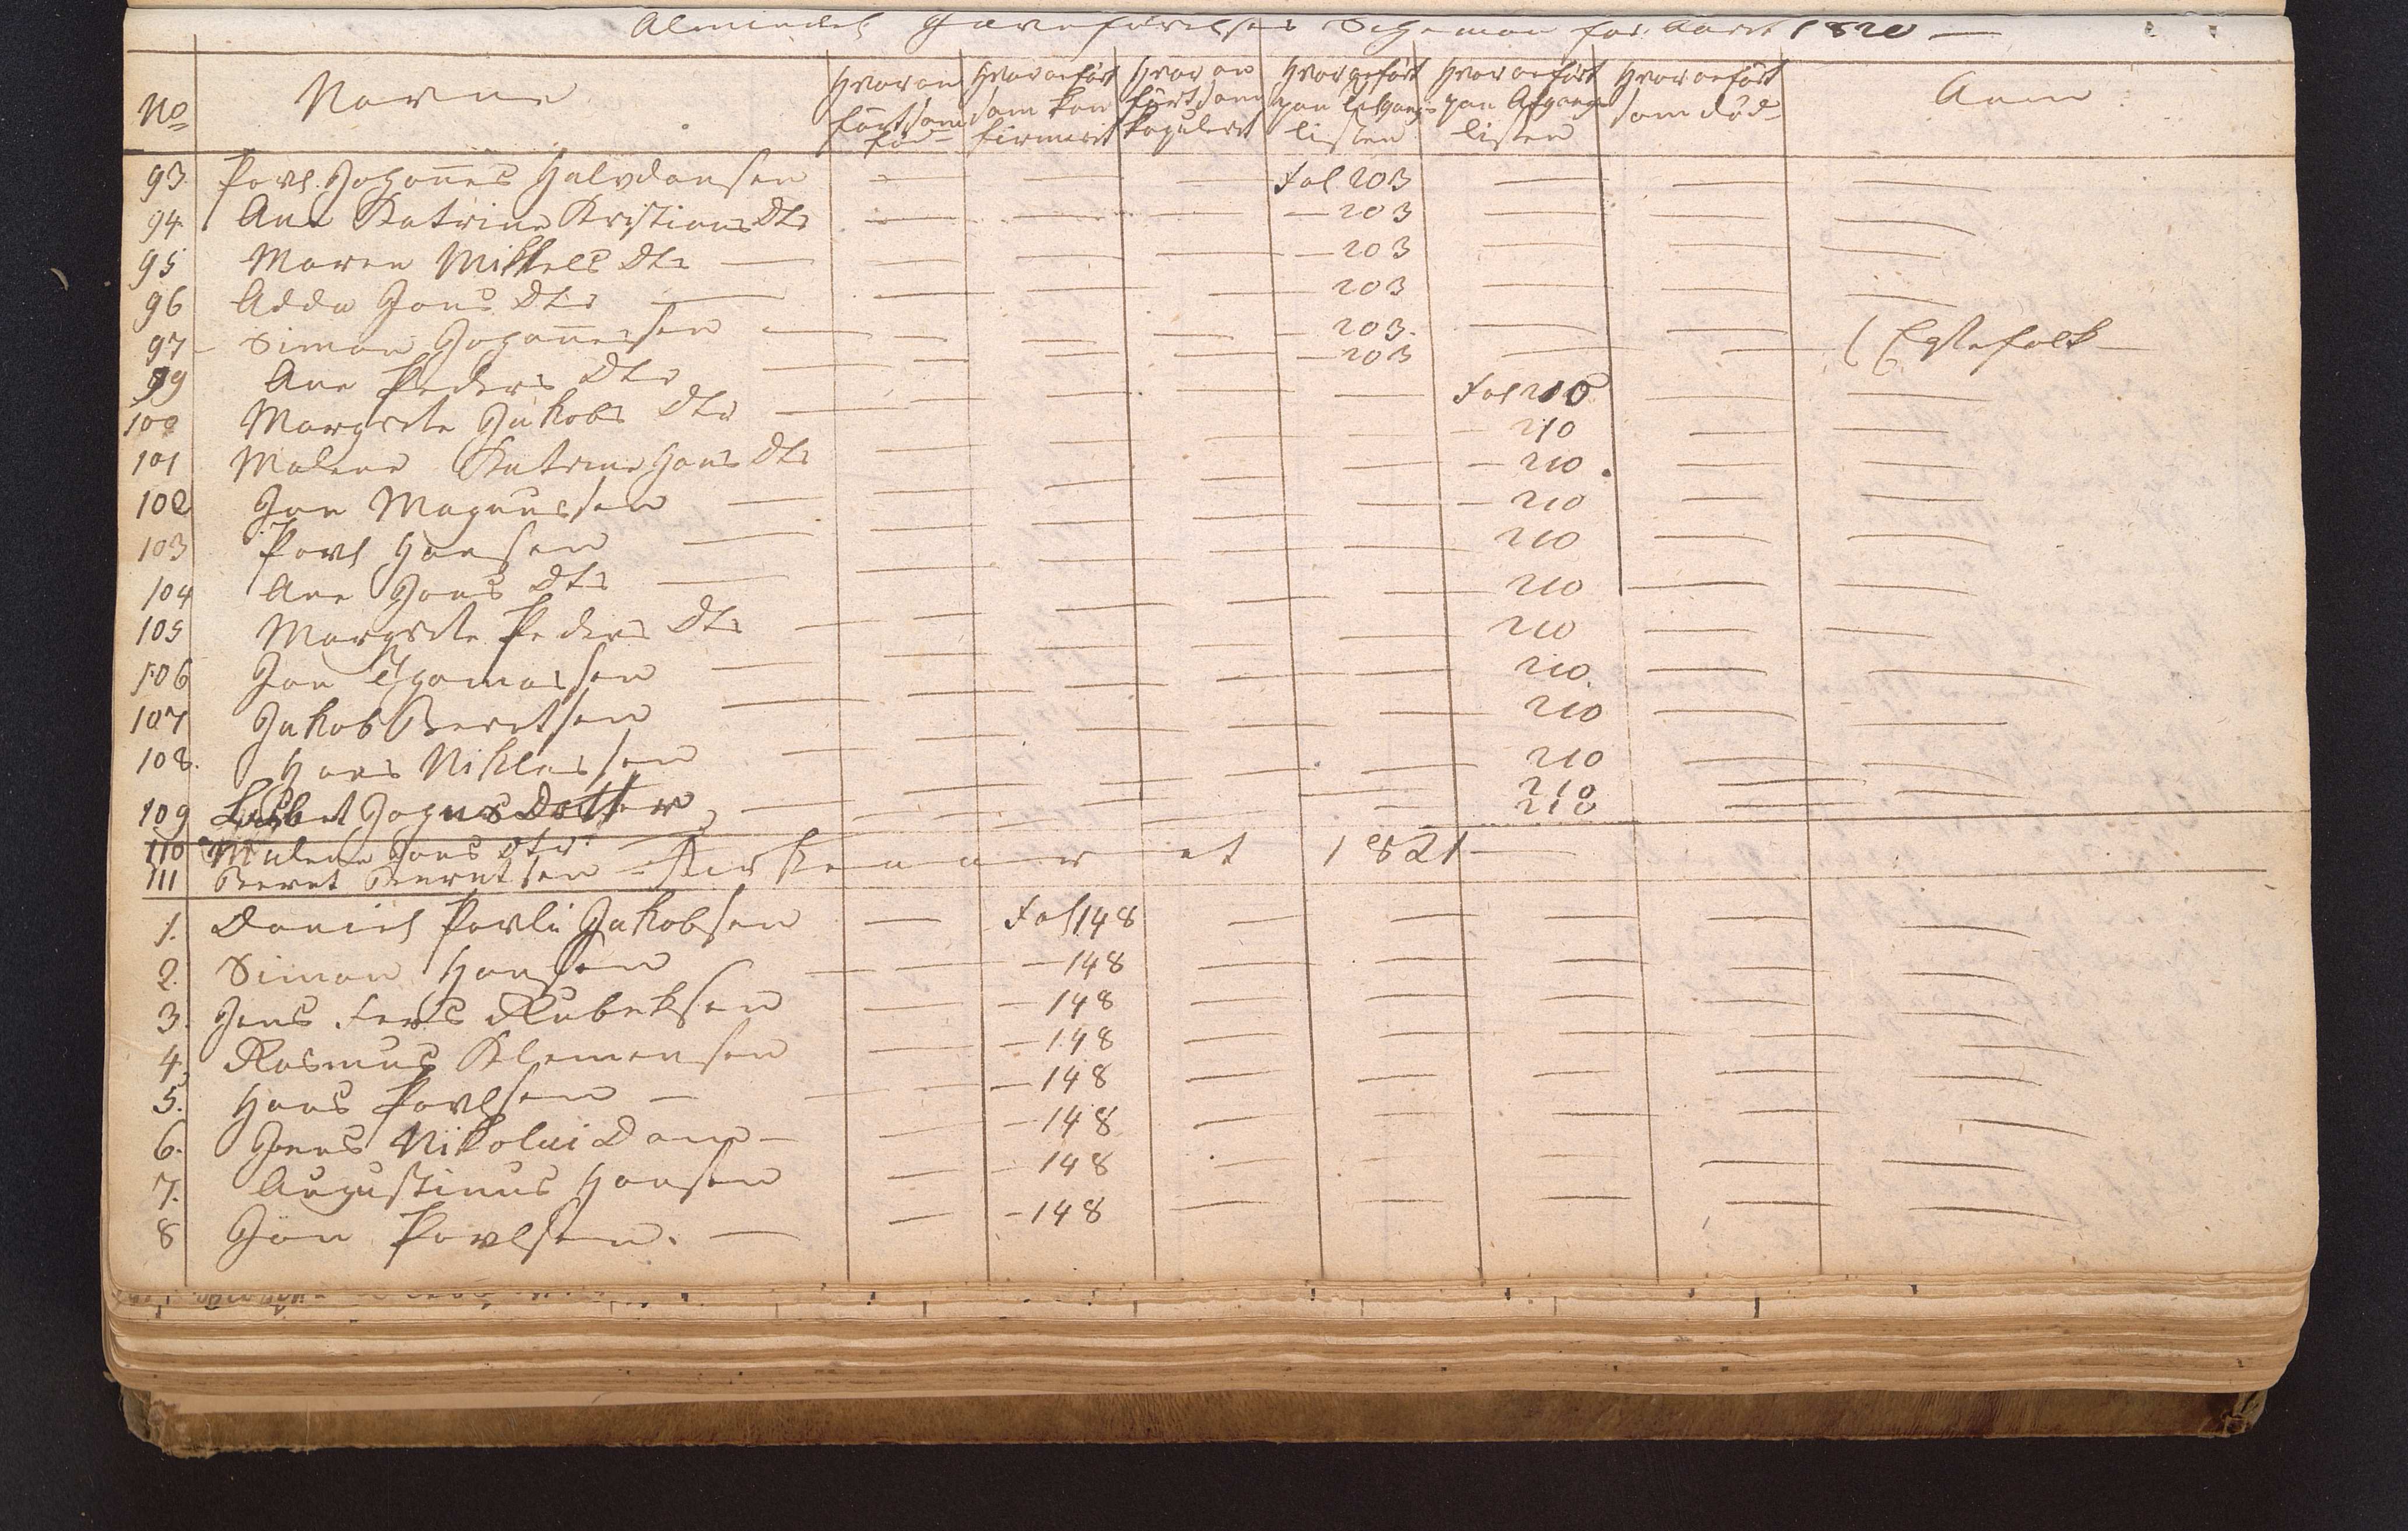 Almindel Jævnførelses Schema for Aaret 1820 —
No Navne Hvor anført som fød Hvor anført som konfirmeret Hvor anført som kopuleret Hvor anført paa Tilgangslisten Hvor anført paa Afgangslisten Hvor anført som død Anm
93. Povl Johan̄es Halvdansen — — — Fol 203 — — —
94. Ane Katrine Kristians Dtr — — — — 203 — — —
95 Maren Mikkels Dtr — — — — — 203 — — —
96 Adda Jons Dtr — — — — 203 — — —
97 — Simon Johan̄essen — — — — — 203. — — ( Egtefolk —
99 Ane Peders Dtr — — — — — 203 — —
100 Margrete Jakobs Dtr — — — — — Fol 210 — —
101 Malene Katrine Hans Dtr — — — — — 210 — —
102 Jon Magnussen — — — — — — 210 — —
103 Povl Hansen — — — — — — 210 — —
104 Ane Jons Dtr — — — — — 210 — —
105 Margrete Peders Dtr — — — — — 210 — —
106 Jon Thomassen — — — — — 210 — —
107 Jakob Berntsen — — — — — 210. — —
108. Hans Niklassen — — — — — 210 — —
109 Lisbet Joens Dotter — — — — — 210 — —
110 Malene Jons Dtr — — — — 210 — —
111 Bernt Berntsen — 210
Kirkeaaret 1821 —
1. Daniel Povli Jakobsen — Fol 148 — — — — —
2. Simon Hansen — — — 148 — — — — —
3. Jens Rubeksen — — 148 — — — — —
4. Rasmus Klemensen — — 148 — — — — —
5. Hans Povlsen — — — — 148 — — — — —
6. Joens Nikolai Dam — — — 148 — — — — —
7. Augustinus Hansen — — 148 — — — — —
8 Jon Povlsen. — — — 148 — — — — —